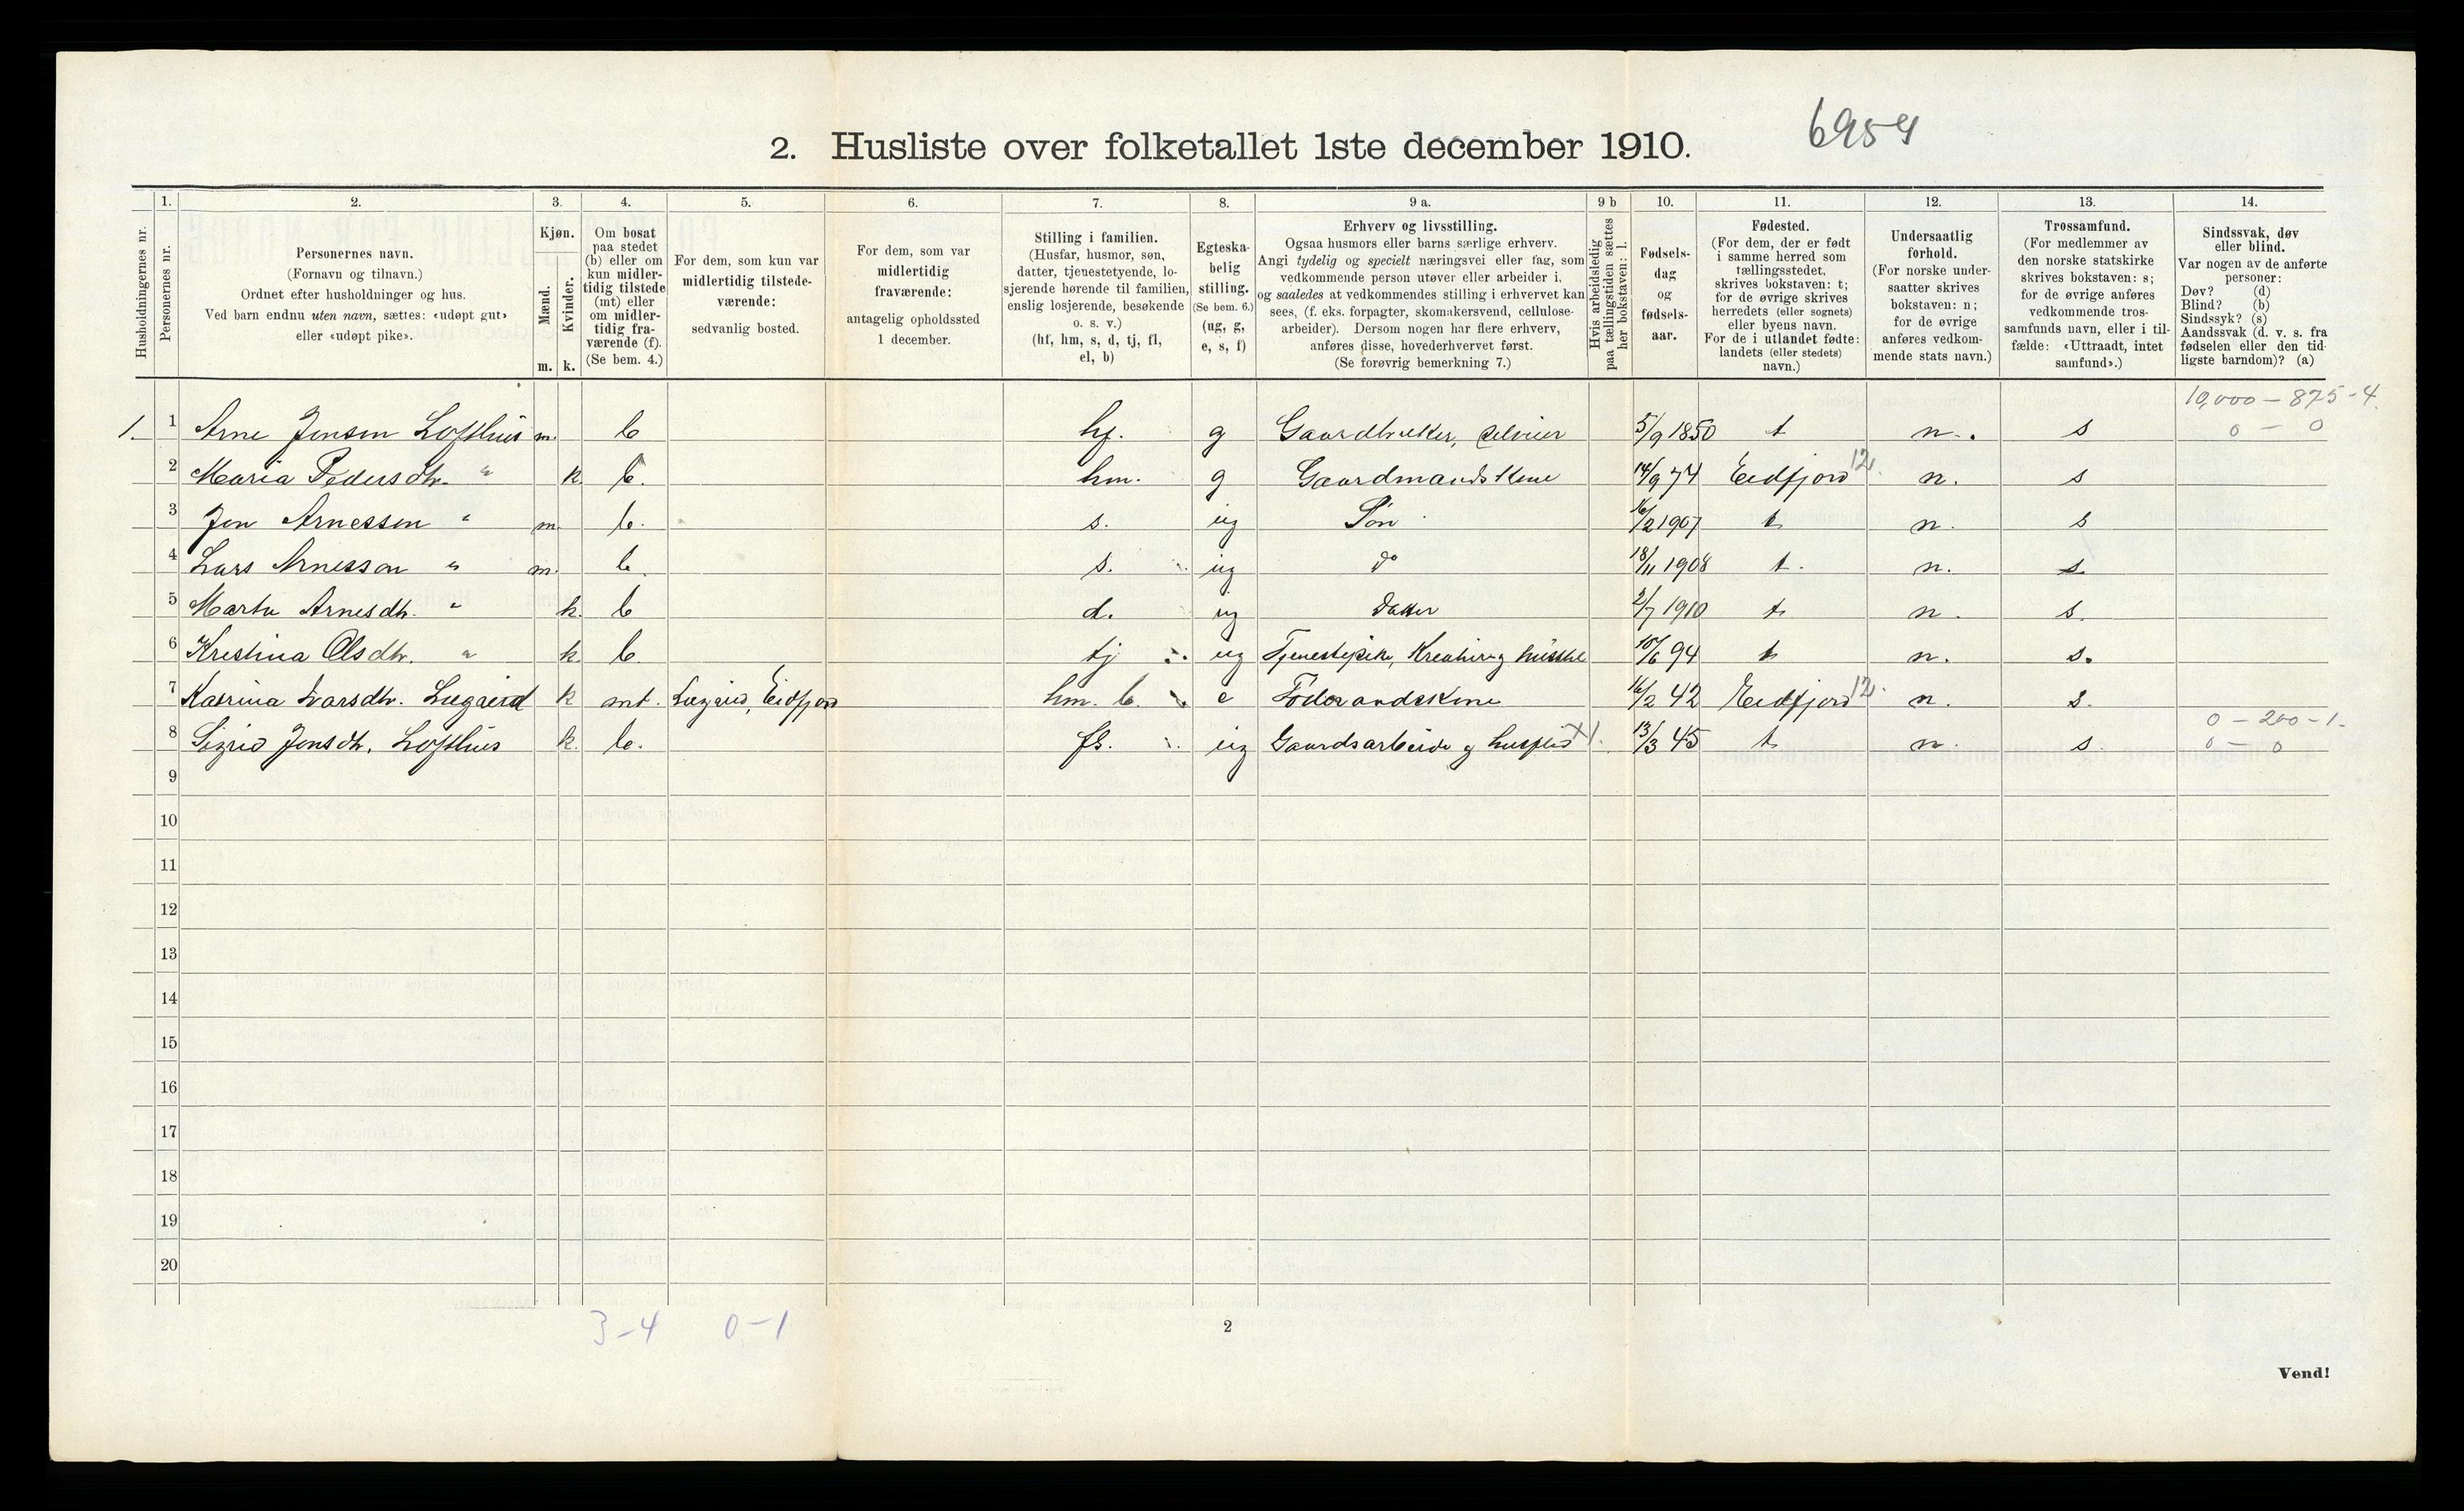 6954
2. Husliste over folketallet 1ste december 1910.
Husholdningernes nr.
1. Personernes nr.
2. Personernes navn.
(Fornavn og tilnavn.)
Ordnet efter husholdninger og hus.
Ved barn endnu uten navn, sættes: «udøpt gut»
eller «udøpt pike».
3. Kjøn.
Mænd. m.
Kvinder. k.
4. Om bosat
paa stedet
(b) eller om
kun midler-
tidig tilstede
(mt) eller
om midler-
tidig fra-
værende (f).
(Se bem. 4.)
5. For dem, som kun var
midlertidig tilstede-
værende:
sedvanlig bosted.
6. For dem, som var
midlertidig
fraværende:
antagelig opholdssted
1 december.
7. Stilling i familien.
(Husfar, husmor, søn,
datter, tjenestetyende, lo-
sjerende hørende til familien,
enslig losjerende, besøkende
o. s. v.)
(hf, hm, s, d, tj, fl,
el, b)
8. Egteska-
belig
stilling.
(Se bem. 6.)
(ug, g,
e, s, f)
9 a. Erhverv og livsstilling.
Ogsaa husmors eller barns særlige erhverv.
Angi tydelig og specielt næringsvei eller fag, som
vedkommende person utøver eller arbeider i,
og saaledes at vedkommendes stilling i erhvervet kan
sees, (f. eks. forpagter, skomakersvend, cellulose-
arbeider). Dersom nogen har flere erhverv,
anføres disse, hovederhvervet først.
(Se forøvrig bemerkning 7.)
9 b Hvis arbeidsledig
paa tællingstiden sættes
her bokstaven: l.
10. Fødsels-
dag
og
fødsels-
aar.
11. Fødested.
(For dem, der er født
i samme herred som
tællingsstedet,
skrives bokstaven: t;
for de øvrige skrives
herredets (eller sognets)
eller byens navn.
For de i utlandet fødte:
landets (eller stedets)
navn.)
12. Undersaatlig
forhold.
(For norske under-
saatter skrives
bokstaven: n;
for de øvrige
anføres vedkom-
mende stats navn.)
13. Trossamfund.
(For medlemmer av
den norske statskirke
skrives bokstaven: s;
for de øvrige anføres
vedkommende tros-
samfunds navn, eller i til-
fælde: «Uttraadt, intet
samfund».)
14. Sindssvak, døv
eller blind.
Var nogen av de anførte
personer:
Døv? (d)
Blind? (b)
Sindssyk? (s)
Aandssvak (d. v. s. fra
fødselen eller den tid-
ligste barndom)? (a)
10,000 - 875 - 4.
1. 1 Arne Jonsen Lofthus m. b hf. g Gaardbruker, selveier 5/9 1850 t n. s 0 - 0
2 Maria Pedersdtr. " k. b. hm. g Gaardmandskone 14/9 74 Eidfjord 12. n. s
3 Jon Arnesson " m. b. s. ug Søn 16/2 1907 t n. s
4 Lars Arnesson " m. b. s. ug do 18/11 1908 t. n. s.
5 Marta Arnesdtr. " k. b d. ug Datter 2/7 1910 t. n. s.
6 Kristina Olsdtr. " k. b tj ug Tjenestepike, Kreatur og husstel 10/6 94 t n. s.
7 Katrina Ivarsdtr. Lægreid k mt. Lægreid, Eidfjord hm. b. e Føderaadskone 16/2 42 Eidfjord 12. n. s.
0 - 200 - 1.
8 Sigrid Jonsdtr. Lofthus k. b. fl. ug Gaardsarbeide og husflid X1. 13/3 45 t n. s. 0 - 0
9
10
11
12
13
14
15
16
17
18
19
20
3-4 0-1
2
Vend!